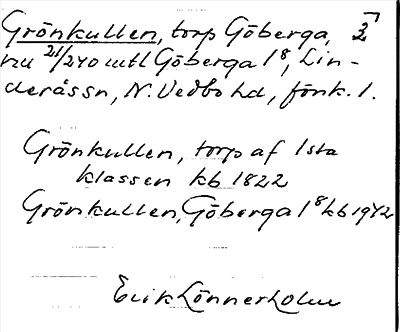 Grönkullen, torp Göberga, 2
nu 21/240 mtl Göberga 1⁸, Lin-
deråssn, N. Vedbo hd, Jönk. l.
Grönkullen, torp af 1sta
klassen kb 1822
Grönkullen, Göberga 1⁸ kb 1942
Erik Lönnerholm